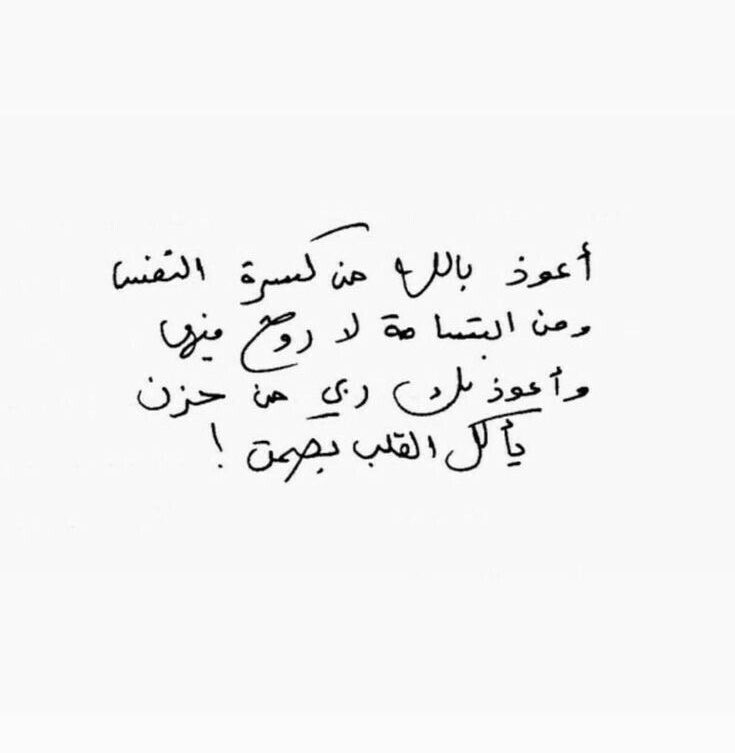 أعوذ بالله من كسرة النفس
ومن ابتسامة لا روح فيها
وأعوذ بك ربي من حزن
يأكل القلب بصمت !